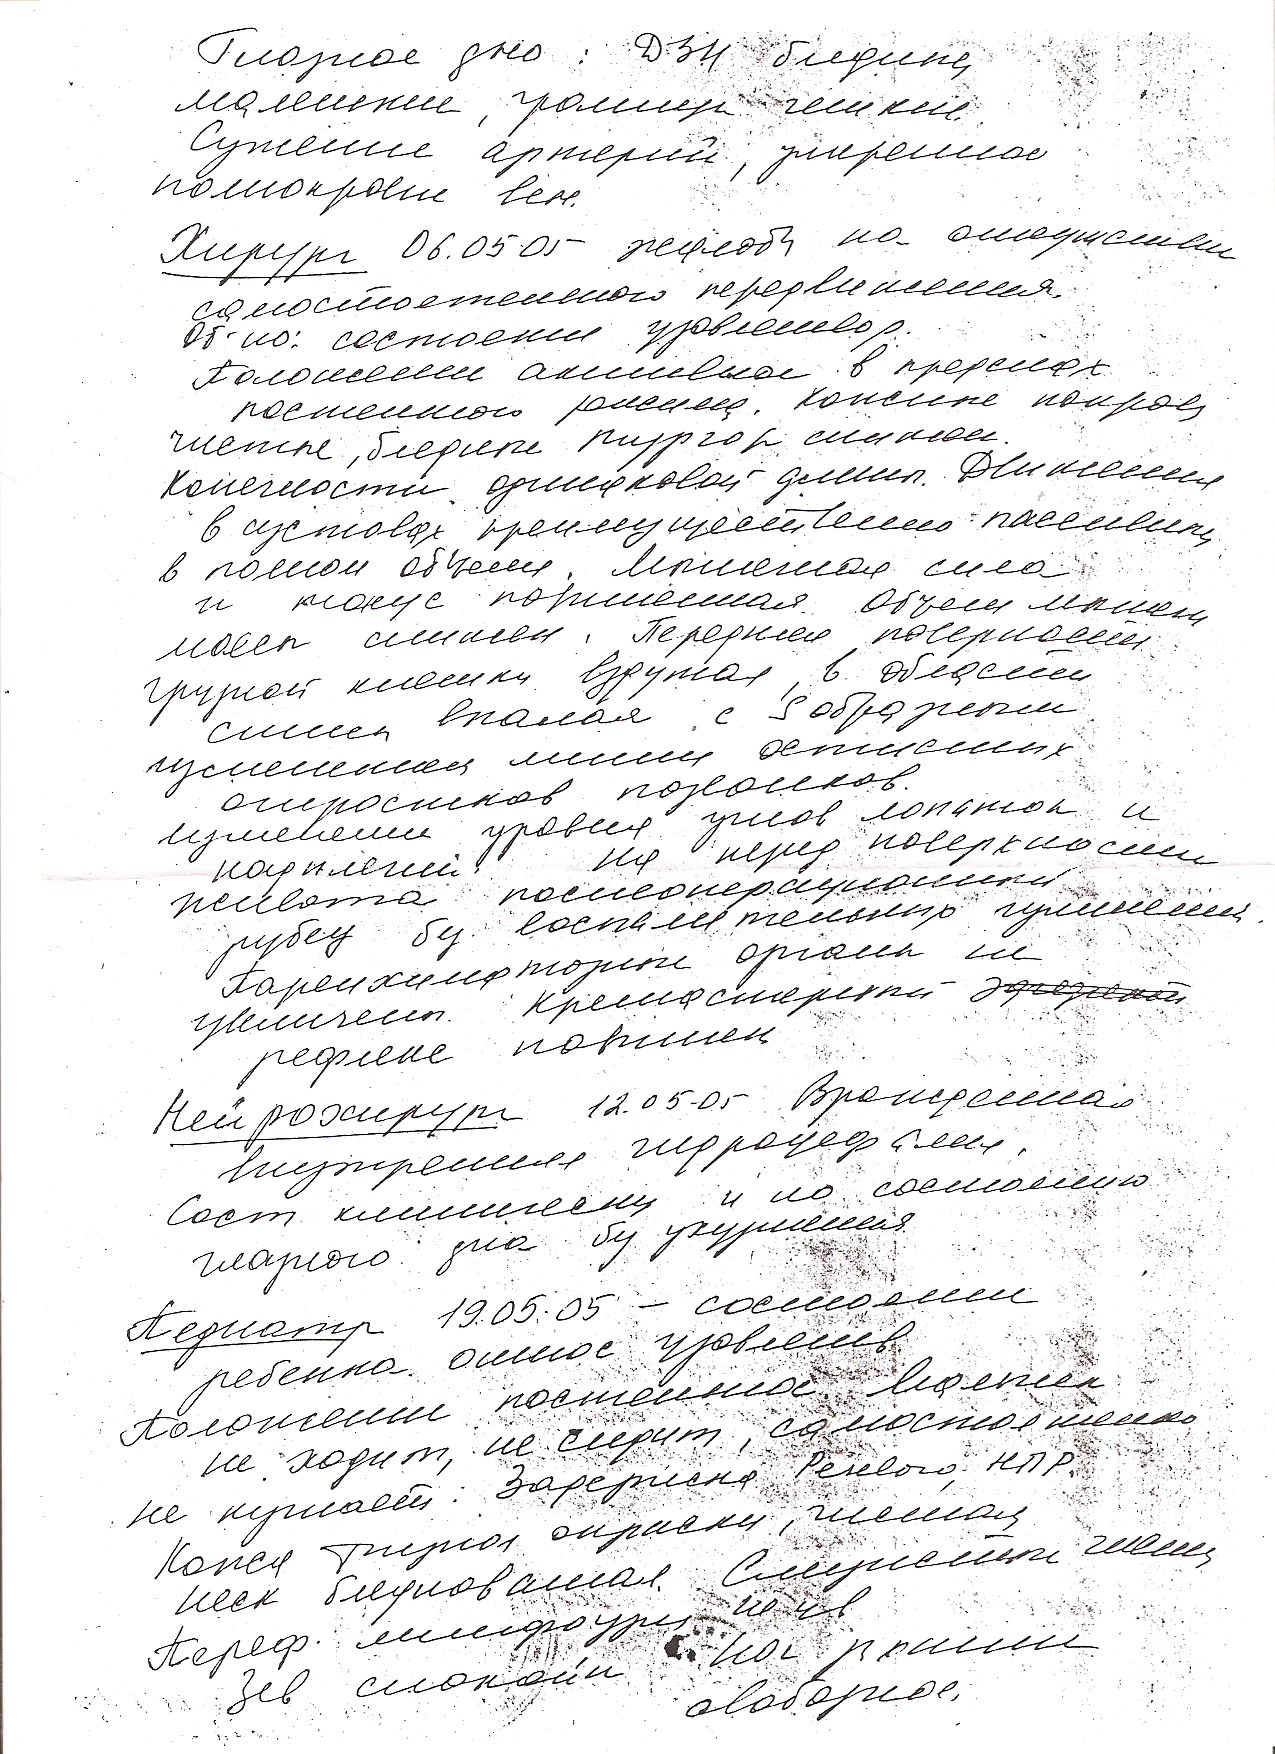 Глазное дно: ДЗН бледные
маленькие, границы четкие
Сужение артерий, умеренное
полнокровие вен.
Хирург 06.05.05 жалобы на отсутствие
самостоятельного передвижения.
Об-но: состояние удовлетвор.
Положение активное в пределах
постельного режима. Кожные покровы
чистые, бледные тургор снижен.
Конечности одинаковой длины. Движения
в суставах преимущественно пассивные
в полном объеме. Мышечная сила
и тонус повышенная. Объем мышц
ног снижен. Передняя поверхность
грудной клетки вздутая, в области
спины впалая с S образным
изменением линии остистых
отростков позвонков.
изменении уровня углов лопаток и
надплечий. На перед поверхности
живота послеоперационный
рубец бу воспалительных изменений.
Паренхиматозные органы не
увеличены. Кремастерный
рефлекс повышен
Нейрохирург 12.05.05 Врожденная
внутренняя гидроцефалия.
Сост клинически и по состоянию
глазного дна бу ухудшения
Педиатр 19.05.05 – состояние
ребенка относ удовлетв
Положение постельное. Мальчик
не ходит, не сидит, самостоятельно
не кушает. Задержка Речевого, НПР.
Кожа окраски, чистая
неск бледноватая. Слизистые чистые
Периф. лимфоузлы не ув
Зев спокоен Нос дыхание
свободное.